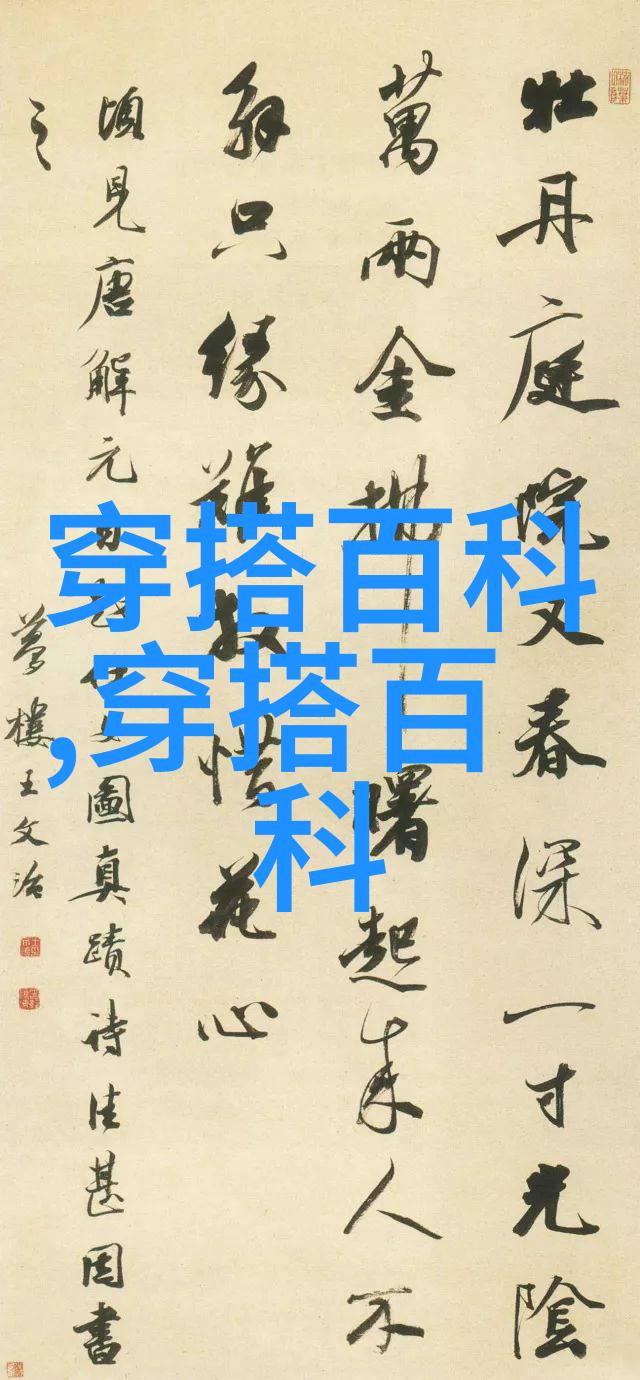 穿搭百科
,穿搭百
科
牡丹庭院又春深一寸光陰
萬兩金拂曙起來人不
解只緣難放惜花心
頃見唐解元自題仕女圖真蹟詩佳甚因書
之
夢樓王文治